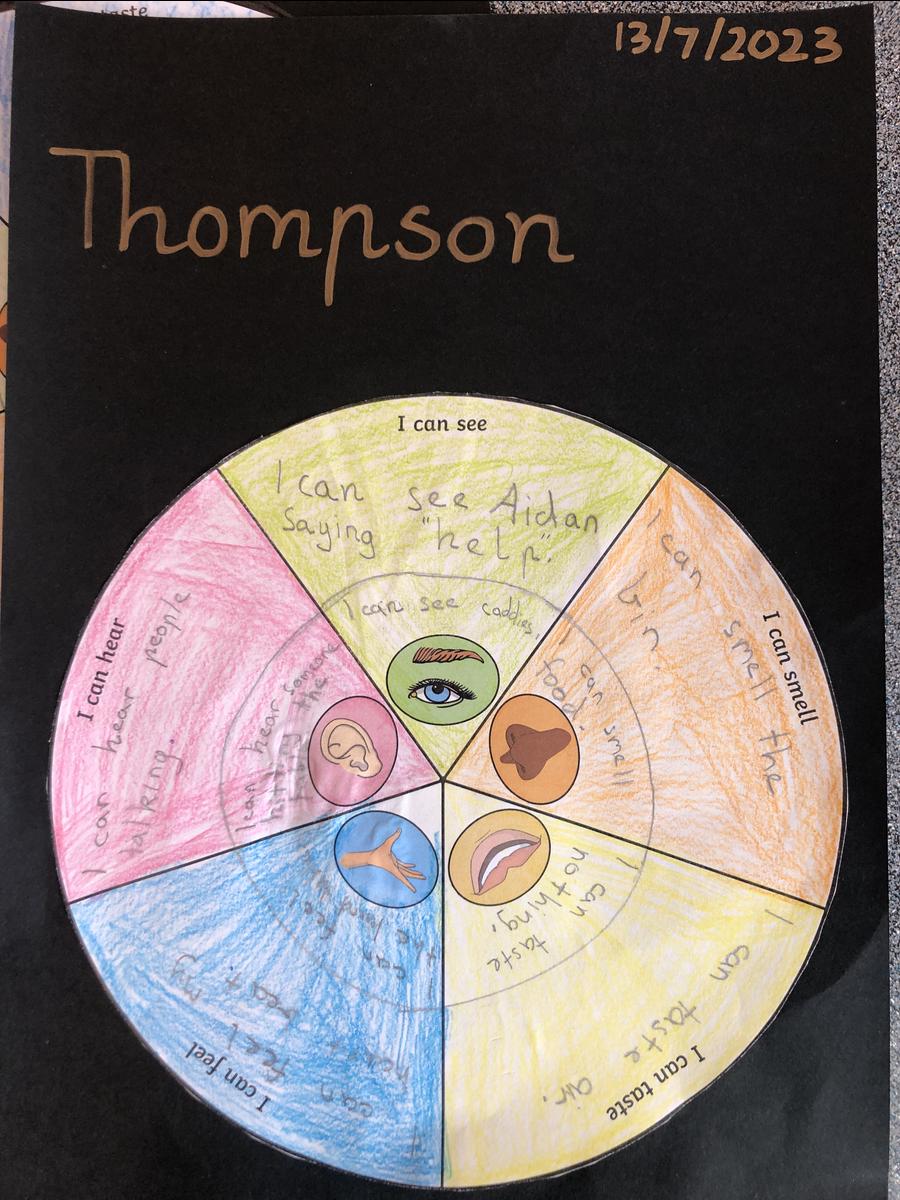 taste
13/7/2023
Thompson
I can see
I can see Aidan
Saying "help".
I can see caddies,
I can smell
I can smell the
bin.
I can smell
food.
I can taste
I can taste air.
I can taste
nothing.
I can feel
I can feel my
heart beat.
I can feel
the
I can hear
I can hear people
talking.
I can hear someone
hitting the